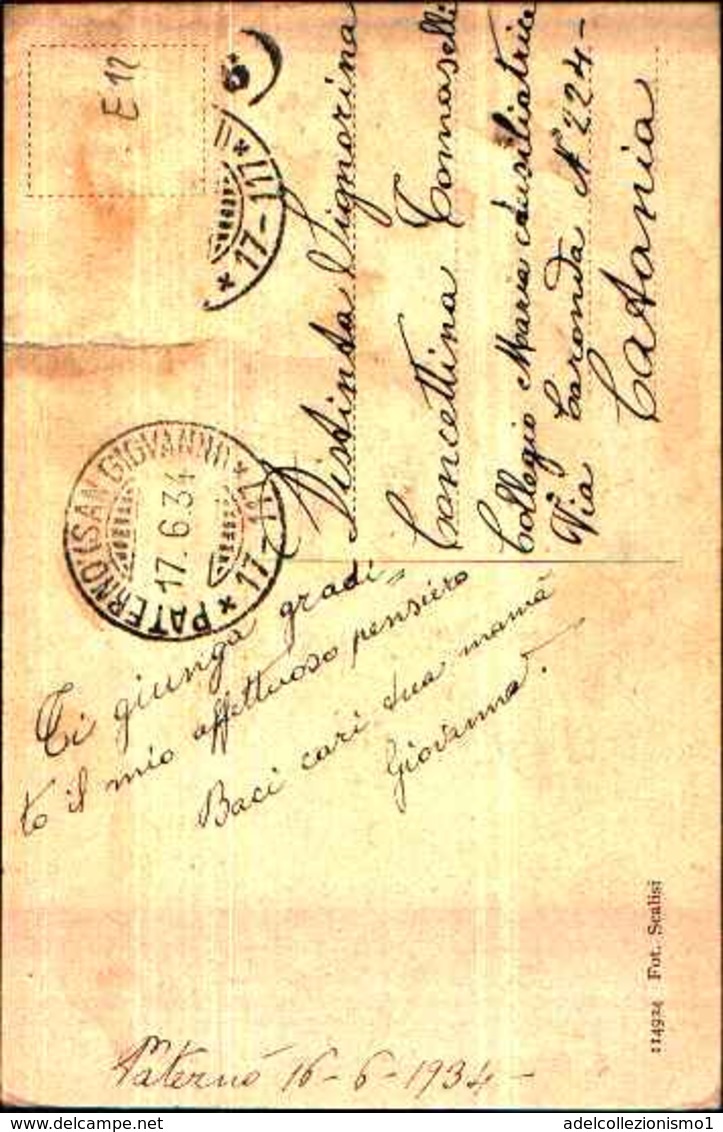 E 12
17-III
PATERNO' (SAN GIOVANNI)
17.6.34
17-III
Paternò 16-6-1934-
Ti giunga gradi=
to il mio affettuoso pensiero
Baci cari tua mamà
Giovanna.
Distinta Signorina
Concettina Tomaselli
Collegio Maria Ausiliatrice
Via Caronda N° 224-
Catania
114924 Fot. Scalisi
adelcollezionismo1